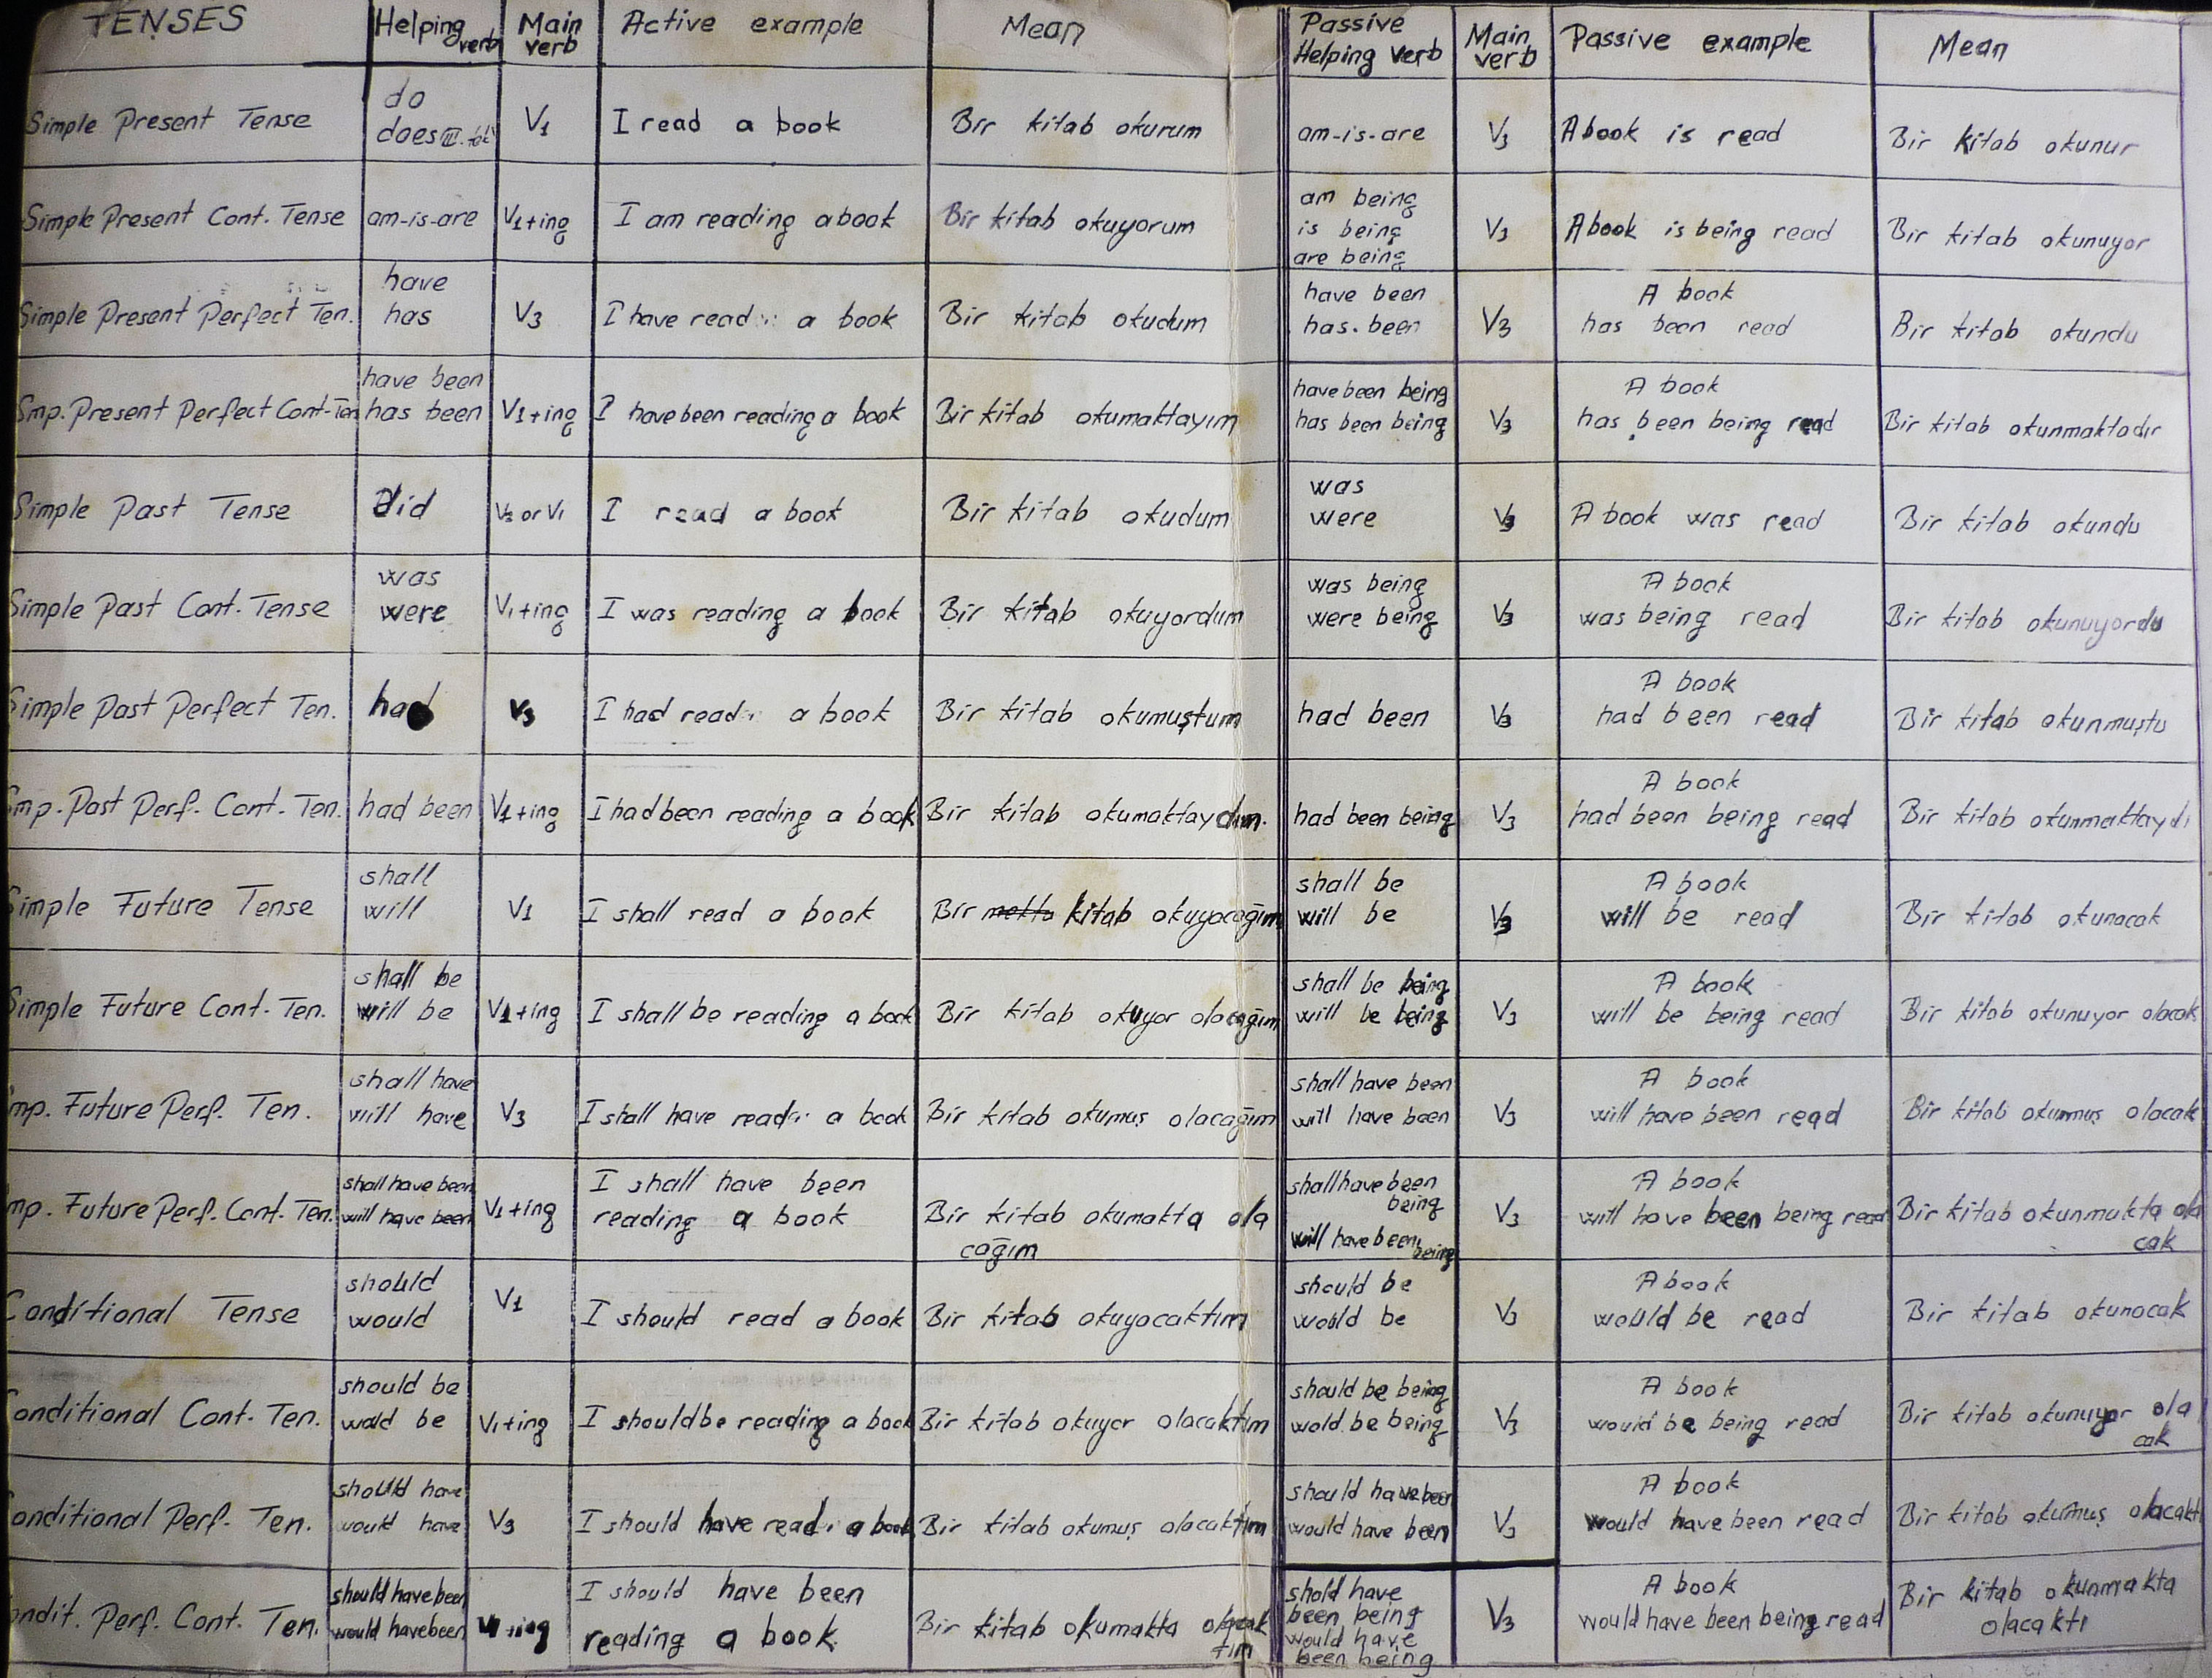 TENSES Helping verb Main verb Active example Mean Passive Helping verb Main verb Passive example Mean
Simple Present Tense do does V1 I read a book Bir kitab okurum am-is-are V3 A book is read Bir kitab okunur
Simple Present Cont. Tense am-is-are V1+ing I am reading a book Bir kitab okuyorum am being is being are being V3 A book is being read Bir kitab okunuyor
Simple Present Perfect Ten. have has V3 I have read a book Bir kitab okudum have been has been V3 A book has been read Bir kitab okundu
Smp. Present Perfect Cont-Ten have been has been V1+ing I have been reading a book Bir kitab okumaktayım have been being has been being V3 A book has been being read Bir kitab okunmaktadır
Simple Past Tense Did V2 or V1 I read a book Bir kitab okudum was were V3 A book was read Bir kitab okundu
Simple Past Cont. Tense was were V1+ing I was reading a book Bir kitab okuyordum was being were being V3 A book was being read Bir kitab okunuyordu
Simple Past Perfect Ten. had V3 I had read a book Bir kitab okumuştum had been V3 A book had been read Bir kitab okunmuştu
Smp. Past Perf. Cont. Ten. had been V1+ing I had been reading a book Bir kitab okumaktaydım. had been being V3 A book had been being read Bir kitab okunmaktaydı
Simple Future Tense shall will V1 I shall read a book Bir kitab okuyacağım shall be will be V3 A book will be read Bir kitab okunacak
Simple Future Cont. Ten. shall be will be V1+ing I shall be reading a book Bir kitab okuyor olacağım shall be being will be being V3 A book will be being read Bir kitab okunuyor olacak
mp. Future Perf. Ten. shall have will have V3 I shall have read a book Bir kitab okumuş olacağım shall have been will have been V3 A book will have been read Bir kitab okunmuş olacak
mp. Future Perf. Cont. Ten. shall have been will have been V1+ing I shall have been reading a book Bir kitab okumakta olacağım shall have been being will have been being V3 A book will have been being read Bir kitab okunmakta olacak
Conditional Tense should would V1 I should read a book Bir kitab okuyacaktım should be would be V3 A book would be read Bir kitab okunacak
Conditional Cont. Ten. should be wold be V1+ing I should be reading a book Bir kitab okuyor olacaktım should be being wold be being V3 A book would be being read Bir kitab okunuyor olacak
onditional Perf. Ten. should have would have V3 I should have read a book Bir kitab okumuş olacaktım should have been would have been V3 A book would have been read Bir kitab okumuş olacaktı
ondit. Perf. Cont. Ten. should have been would have been V1+ing I should have been reading a book. Bir kitab okumakta olacaktım shold have been being would have been being V3 A book would have been being read Bir kitab okunmakta olacaktı